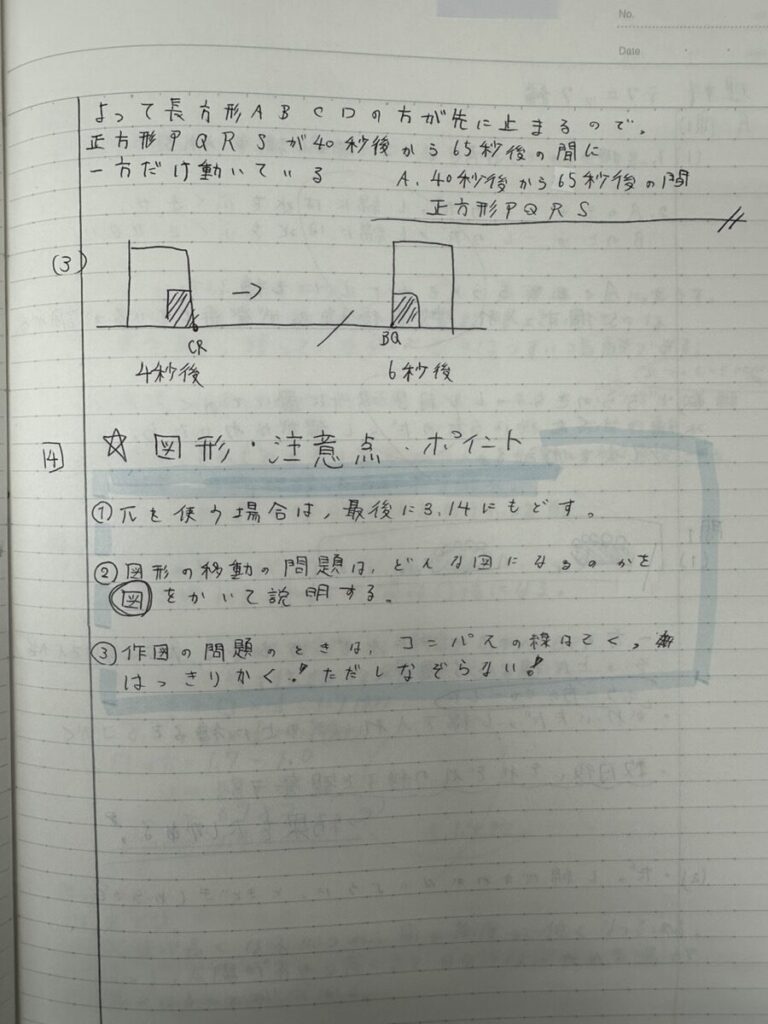 No.
Date
よって長方形ABCDの方が先に止まるので、
正方形PQRSが40秒後から65秒後の間に
一方だけ動いている
A. 40秒後から65秒後の間
正方形PQRS
(3)
→
CR
BQ
4秒後
6秒後
14
☆図形・注意点・ポイント
①πを使う場合は、最後に3.14にもどす。
②図形の移動の問題は、どんな図になるのかを
図をかいて説明する。
③作図の問題のときは、コンパスの線はこく、
はっきりかく!ただしなぞらない!